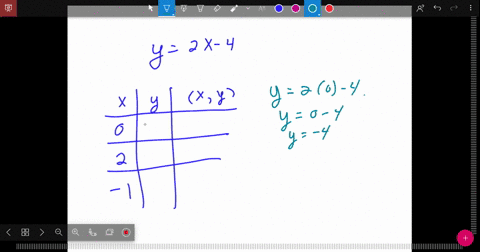 y = 2x - 4
x y (x, y)
0
2
-1
y = 2(0) - 4.
y = 0 - 4
y = -4